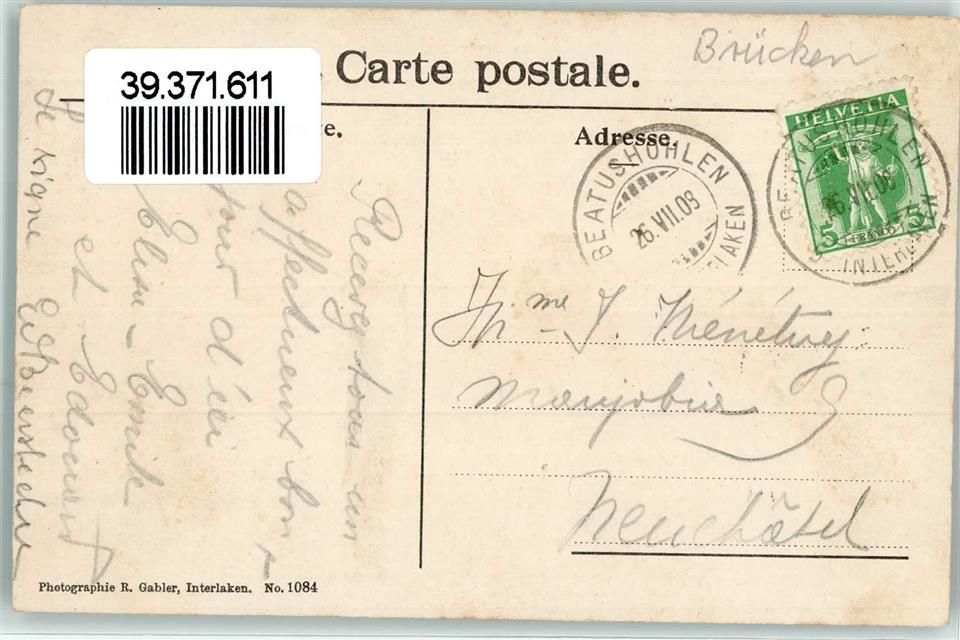 39.371.611
Carte postale.
Brücken
Adresse.
HELVETIA
5 5
FRANCO
BEATUSHÖHLEN
26.VII.09
BEATUSHÖHLEN
26.VII.09
INTERLAKEN
Recevez tous un
affectueux bon-
jour d'ici
Elisa - Emile
et Edouard
Mme J. Ménétrey
Neuchâtel
Photographie R. Gabler, Interlaken. No. 1084